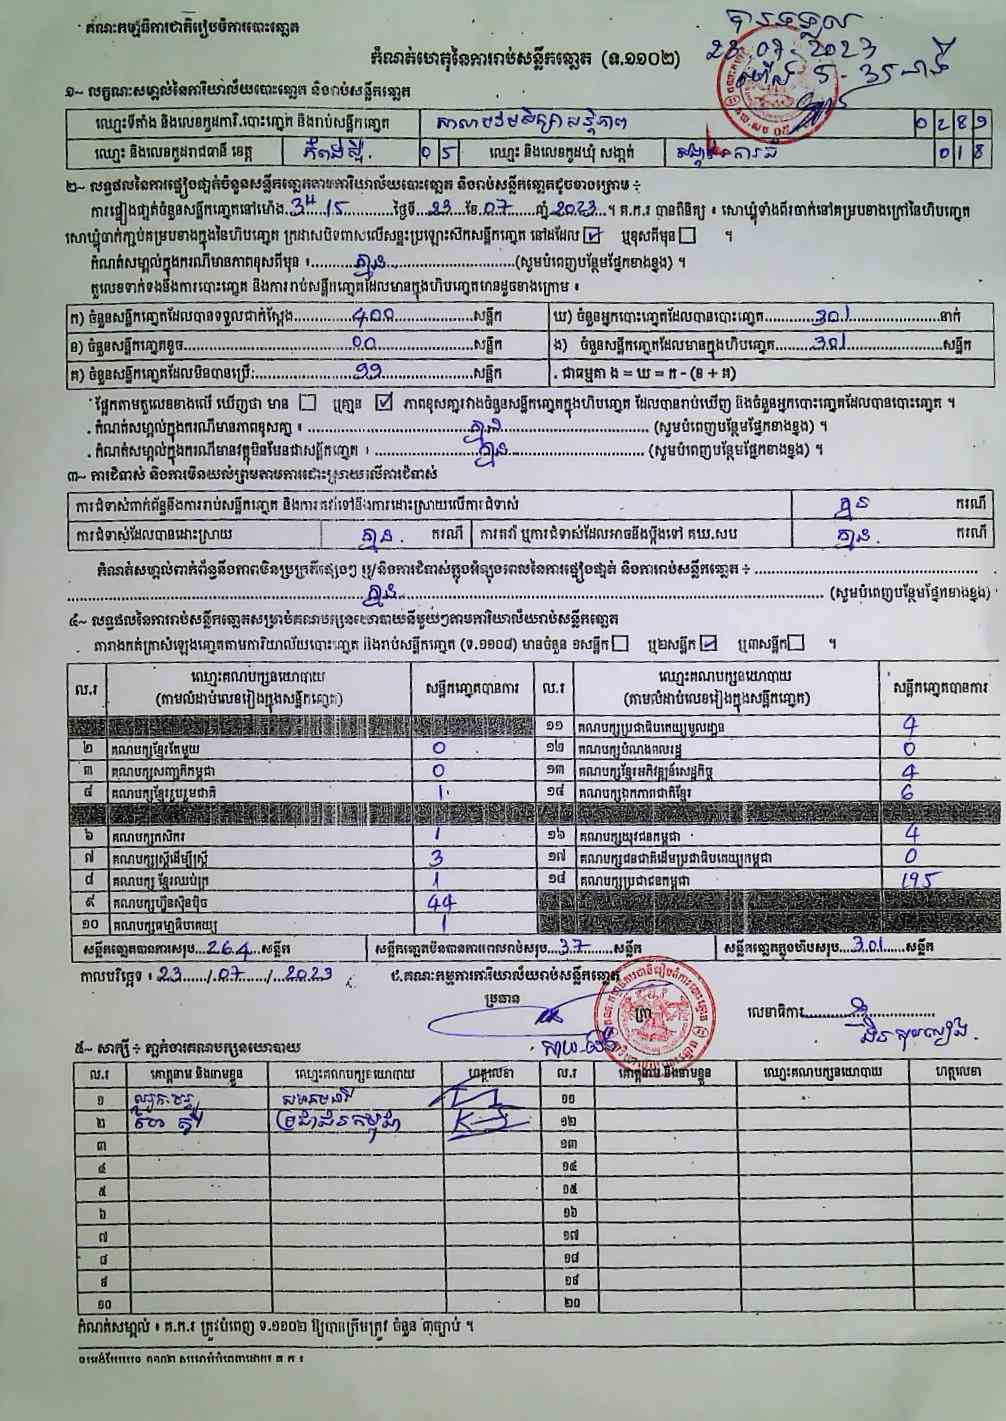 គណៈកម្មាធិការជាតិរៀបចំការបោះឆ្នោត
បានទទួល
23.07.2023
ម៉ោង 5-35 នាទី
កំណត់ហេតុនៃការរាប់សន្លឹកឆ្នោត (ទ.១១០២)
១~ លក្ខណៈសម្គាល់នៃការិយាល័យបោះឆ្នោត និងរាប់សន្លឹកឆ្នោត
ឈ្មោះទីតាំង និងលេខកូដការិ.បោះឆ្នោត និងរាប់សន្លឹកឆ្នោត សាលាបឋមសិក្សា សន្តិភាព 0289
ឈ្មោះ និងលេខកូដរាជធានី ខេត្ត 05 ឈ្មោះ និងលេខកូដឃុំ សង្កាត់ 018
២~ លទ្ធផលនៃការផ្ទៀងផ្ទាត់ចំនួនសន្លឹកឆ្នោតតាមការិយាល័យបោះឆ្នោត និងរាប់សន្លឹកឆ្នោតដូចខាងក្រោម ÷
ការផ្ទៀងផ្ទាត់ចំនួនសន្លឹកឆ្នោតនៅម៉ោង 3 15 ថ្ងៃទី 23 ខែ 07 ឆ្នាំ 2023 ។ គ.ក.រ បានពិនិត្យ ៖ សោឃ្លុំទាំងពីរចាក់នៅគម្របខាងក្រៅនៃហិបឆ្នោត
សោឃ្លុំចាក់ភ្ជាប់គម្របខាងក្នុងនៃហិបឆ្នោត ក្រដាសបិទពាសលើសន្ទះប្រឡោះស៊កសន្លឹកឆ្នោត នៅដដែល ☑ ឬខុសពីមុន ☐ ។
កំណត់សម្គាល់ក្នុងករណីមានភាពខុសពីមុន ៖ គ្មាន (សូមបំពេញបន្ថែមផ្នែកខាងខ្នង) ។
តួលេខទាក់ទងនឹងការបោះឆ្នោត និងការរាប់សន្លឹកឆ្នោតដែលមានក្នុងហិបឆ្នោតមានដូចខាងក្រោម ៖
ក) ចំនួនសន្លឹកឆ្នោតដែលបានទទួលជាក់ស្តែង 400 សន្លឹក ឃ) ចំនួនអ្នកបោះឆ្នោតដែលបានបោះឆ្នោត 301 នាក់
ខ) ចំនួនសន្លឹកឆ្នោតខូច 00 សន្លឹក ង) ចំនួនសន្លឹកឆ្នោតដែលមានក្នុងហិបឆ្នោត 301 សន្លឹក
គ) ចំនួនសន្លឹកឆ្នោតដែលមិនបានប្រើ 99 សន្លឹក . ជាធម្មតា ង = ឃ = ក - (ខ + គ)
ផ្អែកតាមតួលេខខាងលើ ឃើញថា មាន ☐ ឬគ្មាន ☑ ភាពខុសគ្នារវាងចំនួនសន្លឹកឆ្នោតក្នុងហិបឆ្នោត ដែលបានរាប់ឃើញ និងចំនួនអ្នកបោះឆ្នោតដែលបានបោះឆ្នោត ។
. កំណត់សម្គាល់ក្នុងករណីមានភាពខុសគ្នា ៖ គ្មាន (សូមបំពេញបន្ថែមផ្នែកខាងខ្នង) ។
. កំណត់សម្គាល់ក្នុងករណីមានវត្ថុមិនមែនជាសន្លឹកឆ្នោត ៖ គ្មាន (សូមបំពេញបន្ថែមផ្នែកខាងខ្នង) ។
៣~ ការជំទាស់ និងការមិនយល់ព្រមតាមការដោះស្រាយលើការជំទាស់
ការជំទាស់ពាក់ព័ន្ធនឹងការរាប់សន្លឹកឆ្នោត និងការតវ៉ាទៅនឹងការដោះស្រាយលើការជំទាស់ គ្មាន ករណី
ការជំទាស់ដែលបានដោះស្រាយ គ្មាន . ករណី ការតវ៉ា ឬការជំទាស់ដែលអាចនឹងប្តឹងទៅ គឃ.សប គ្មាន . ករណី
កំណត់សម្គាល់ពាក់ព័ន្ធនឹងភាពមិនប្រក្រតីផ្សេងៗ ឬ/និងការជំទាស់ក្នុងអំឡុងពេលនៃការផ្ទៀងផ្ទាត់ និងការរាប់សន្លឹកឆ្នោត ÷
គ្មាន (សូមបំពេញបន្ថែមផ្នែកខាងខ្នង)
៤~ លទ្ធផលនៃការរាប់សន្លឹកឆ្នោតសម្រាប់គណបក្សនយោបាយនីមួយៗតាមការិយាល័យរាប់សន្លឹកឆ្នោត
តារាងកត់ត្រាសំឡេងឆ្នោតតាមការិយាល័យបោះឆ្នោត និងរាប់សន្លឹកឆ្នោត (ទ.១១០៨) មានចំនួន ១សន្លឹក ☐ ឬ២សន្លឹក ☑ ឬ៣សន្លឹក ☐ ។
ល.រ ឈ្មោះគណបក្សនយោបាយ (តាមលំដាប់លេខរៀងក្នុងសន្លឹកឆ្នោត) សន្លឹកឆ្នោតបានការ ល.រ ឈ្មោះគណបក្សនយោបាយ (តាមលំដាប់លេខរៀងក្នុងសន្លឹកឆ្នោត) សន្លឹកឆ្នោតបានការ
១១ គណបក្សប្រជាធិបតេយ្យមូលដ្ឋាន 4
២ គណបក្សខ្មែរតែមួយ 0 ១២ គណបក្សបំណងពលរដ្ឋ 0
៣ គណបក្សសញ្ជាតិកម្ពុជា 0 ១៣ គណបក្សខ្មែរអភិវឌ្ឍន៍សេដ្ឋកិច្ច 4
៤ គណបក្សខ្មែររួបរួមជាតិ 1 ១៤ គណបក្សឯកភាពជាតិខ្មែរ 6
៦ គណបក្សកសិករ 1 ១៦ គណបក្សយុវជនកម្ពុជា 4
៧ គណបក្សស្ត្រីដើម្បីស្ត្រី 3 ១៧ គណបក្សជនជាតិដើមប្រជាធិបតេយ្យកម្ពុជា 0
៨ គណបក្ស ខ្មែរឈប់ក្រ 1 ១៨ គណបក្សប្រជាជនកម្ពុជា 195
៩ គណបក្សហ៊្វុនស៊ិនប៉ិច 44
១០ គណបក្សធម្មាធិបតេយ្យ 1
សន្លឹកឆ្នោតបានការសរុប 264 សន្លឹក សន្លឹកឆ្នោតមិនបានការពេលរាប់សរុប 37 សន្លឹក សន្លឹកឆ្នោតក្នុងហិបសរុប 301 សន្លឹក
កាលបរិច្ឆេទ ៖ 23 / 07 / 2023 ជ.គណៈកម្មការការិយាល័យរាប់សន្លឹកឆ្នោត
ប្រធាន លេខាធិការ
៥~ សាក្សី ÷ ភ្នាក់ងារគណបក្សនយោបាយ
ល.រ គោត្តនាម និងនាមខ្លួន ឈ្មោះគណបក្សនយោបាយ ហត្ថលេខា ល.រ គោត្តនាម និងនាមខ្លួន ឈ្មោះគណបក្សនយោបាយ ហត្ថលេខា
១ ១១
២ ប្រជាជនកម្ពុជា ១២
៣ ១៣
៤ ១៤
៥ ១៥
៦ ១៦
៧ ១៧
៨ ១៨
៩ ១៩
១០ ២០
កំណត់សម្គាល់ ៖ គ.ក.រ ត្រូវបំពេញ ទ.១១០២ ឱ្យបានត្រឹមត្រូវ ចំនួន ៣ច្បាប់ ។